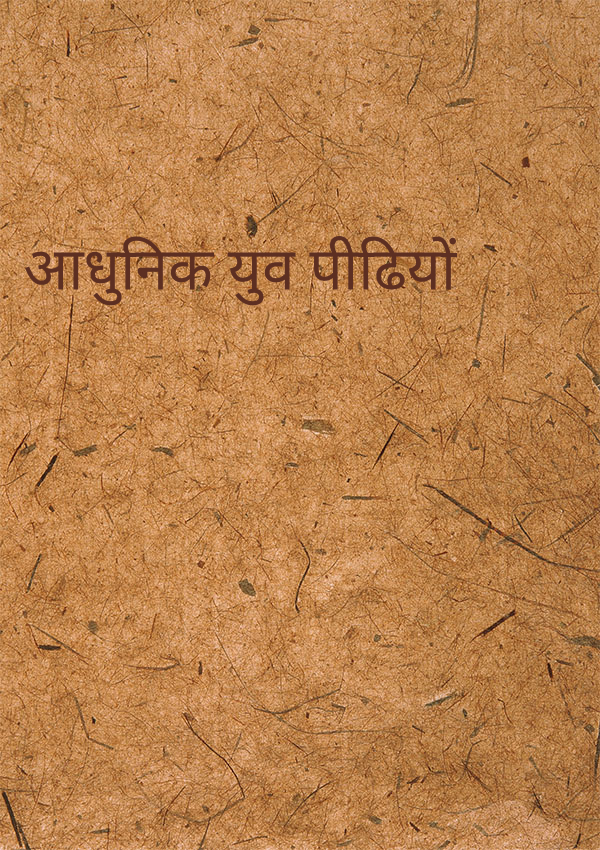 आधुनिक युव पीढियों